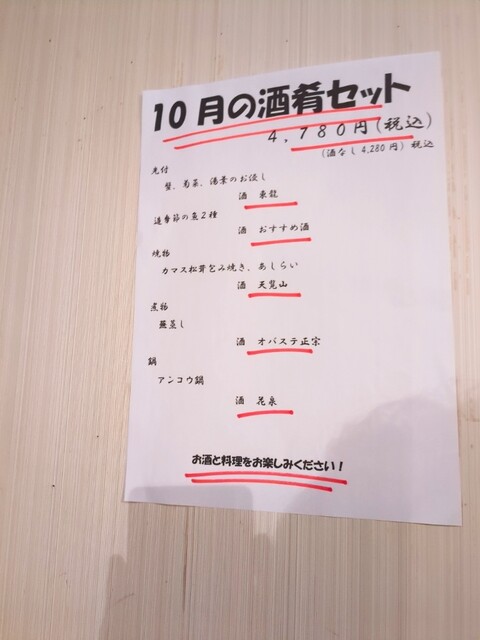 10月の酒肴セット
4,780円(税込)
(酒なし 4,280円) 税込
先付
蟹、菊菜、湯葉のお浸し
酒 来龍
造季節の魚2種
酒 おすすめ酒
焼物
カマス松茸包み焼き、あしらい
酒 天覧山
煮物
蕪蒸し
酒 オバステ正宗
鍋
アンコウ鍋
酒 花泉
お酒と料理をお楽しみください!